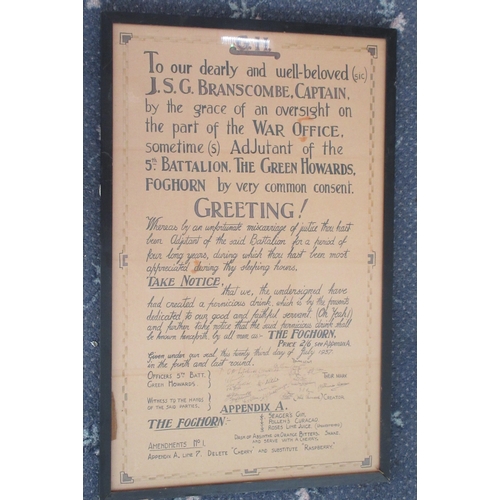 To our dearly and well-beloved (sic)
J.S.G. BRANSCOMBE, CAPTAIN,
by the grace of an oversight on
the part of the WAR OFFICE,
sometime (s) Adjutant of the
5TH BATTALION, THE GREEN HOWARDS,
FOGHORN by very common consent.
GREETING!
Whereas by an unfortunate miscarriage of justice thou hast
been Adjutant of the said Battalion for a period of
four long years, during which thou hast been most
appreciated during thy sleeping hours,
TAKE NOTICE,
that we, the undersigned have
had created a pernicious drink, which is by the presents
dedicated to our good and faithful servant. (Oh Yeah!)
and further take notice that the said pernicious drink shall
be known henceforth by all men as:- THE FOGHORN.
PRICE 2/6, SEE APPENDIX
Given under our seal, this twenty third day of July 1937
in the fourth and last round.
OFFICERS 5TH BATT.
GREEN HOWARDS
THEIR MARKS
WITNESS TO THE MARKS
OF THE SAID PARTIES.
APPENDIX A.
THE FOGHORN:-
SEAGERS GIN
CURACAO
ROSES LIME JUICE
DASH OF ABSINTHE OR ORANGE BITTERS. SHAKE
AND SERVE WITH A CHERRY.
AMENDMENTS No 1.
APPENDIX A, LINE DELETE "CHERRY" AND SUBSTITUTE "RASPBERRY"